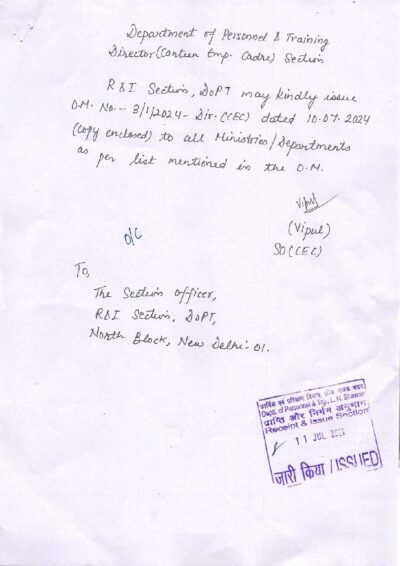 Department of Personnel & Training
Director (Canteen Emp. Cadre) Section
R&I Section, DoPT may kindly issue
O.M. No.- 3/1/2024- Dir.(CEC) dated 10.07.2024
(Copy enclosed) to all Ministries/Departments
as per list mentioned in the O.M.
Vipul
(Vipul)
SO(CEC)
O/C
To,
The Section Officer,
R&I Section, DoPT,
North Block, New Delhi-01.
कार्मिक एवं प्रशिक्षण विभाग, लोक नायक भवन
Dept. of Personnel & Trg., L.N. Bhawan
प्राप्ति और निर्गम अनुभाग,
Receipt & Issue Section
11 JUL
जारी किया / ISSUED